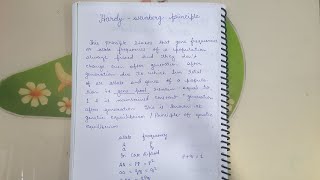 Hardy - wanberg principle
This principle states that gene frequency
or allele frequency of a population
always fixed and they don't
change even after generation after
generation due to which sum total
of all allele and genes of a popula-
tion is gene pool remain equal to
1 & is maintained constant generation
after generation. This is known as
genetic equilibrium / Principle of genetic
equilibrium
allele frequency
A p
a q
In case diploid p+q = 1
AA = PP = P²
aa = qq = q²